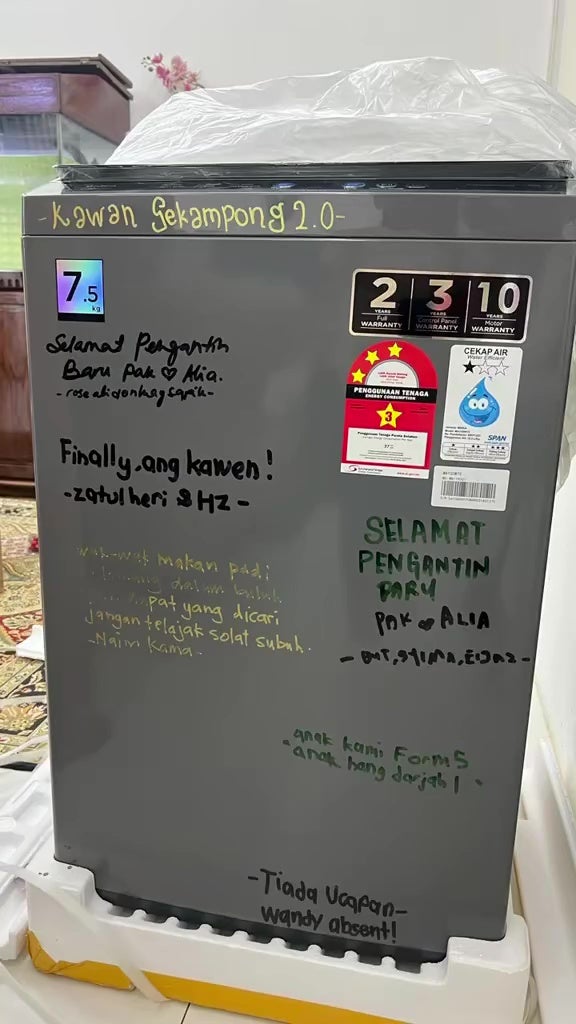 -Kawan Sekampong 2.0-
7.5
kg
2 3 10
YEARS YEARS YEARS
Full Control Panel Motor
WARRANTY WARRANTY WARRANTY
Selamat Pengantin
Baru Pak ♡ Alia.
PENGGUNAAN TENAGA
ENERGY CONSUMPTION
3
CEKAP AIR
Water Efficient
SPAN
Finally, ang kawen!
-Zatul heri & HZ-
makan padi
dalam
pat yang dicari
jangan telajak solat subuh.
-Naim Kama-
SELAMAT
PENGANTIN
BARU
PAK ALIA
-anak kami Form 5
anak hang darjah 1-
-Tiada Ucapan-
Wandy absent!